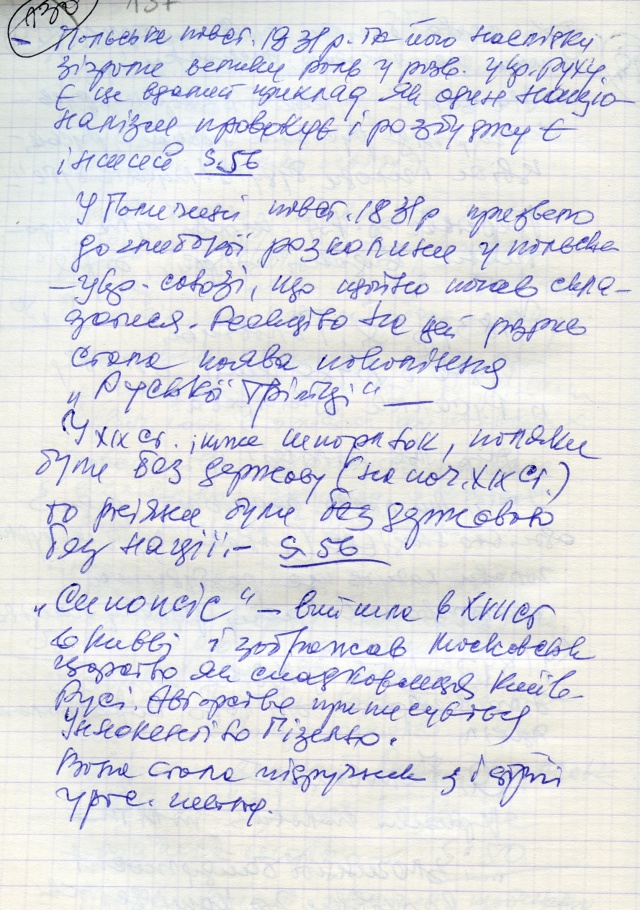 130
137
– Польське повст. 1931 р. та його наслідки
зіграло велику роль у розв. укр. руху.
Є це вдалий приклад як один націо-
налізм провокує і розбуджує
інший S. 56
У Галичині повст. 1831 р призвело
до глибокої розколини у польсько
– укр. союзі, що щойно почав скла-
датися. Реакцією на цей
стала поява покоління
"Руської Трійці" —
У ХІХ ст. інший порядок, поляки
були без держави (на поч. ХІХ ст.)
то росіяни були державою
без нації. – S. 56
"Синопсис" – вийшла в XVII ст
в Києві і зображав Московське
царство як спадкоємця Київ.
Русі. Авторство приписується
Інокентію Гізелю.
Вона стала підручник з історії
у рос.